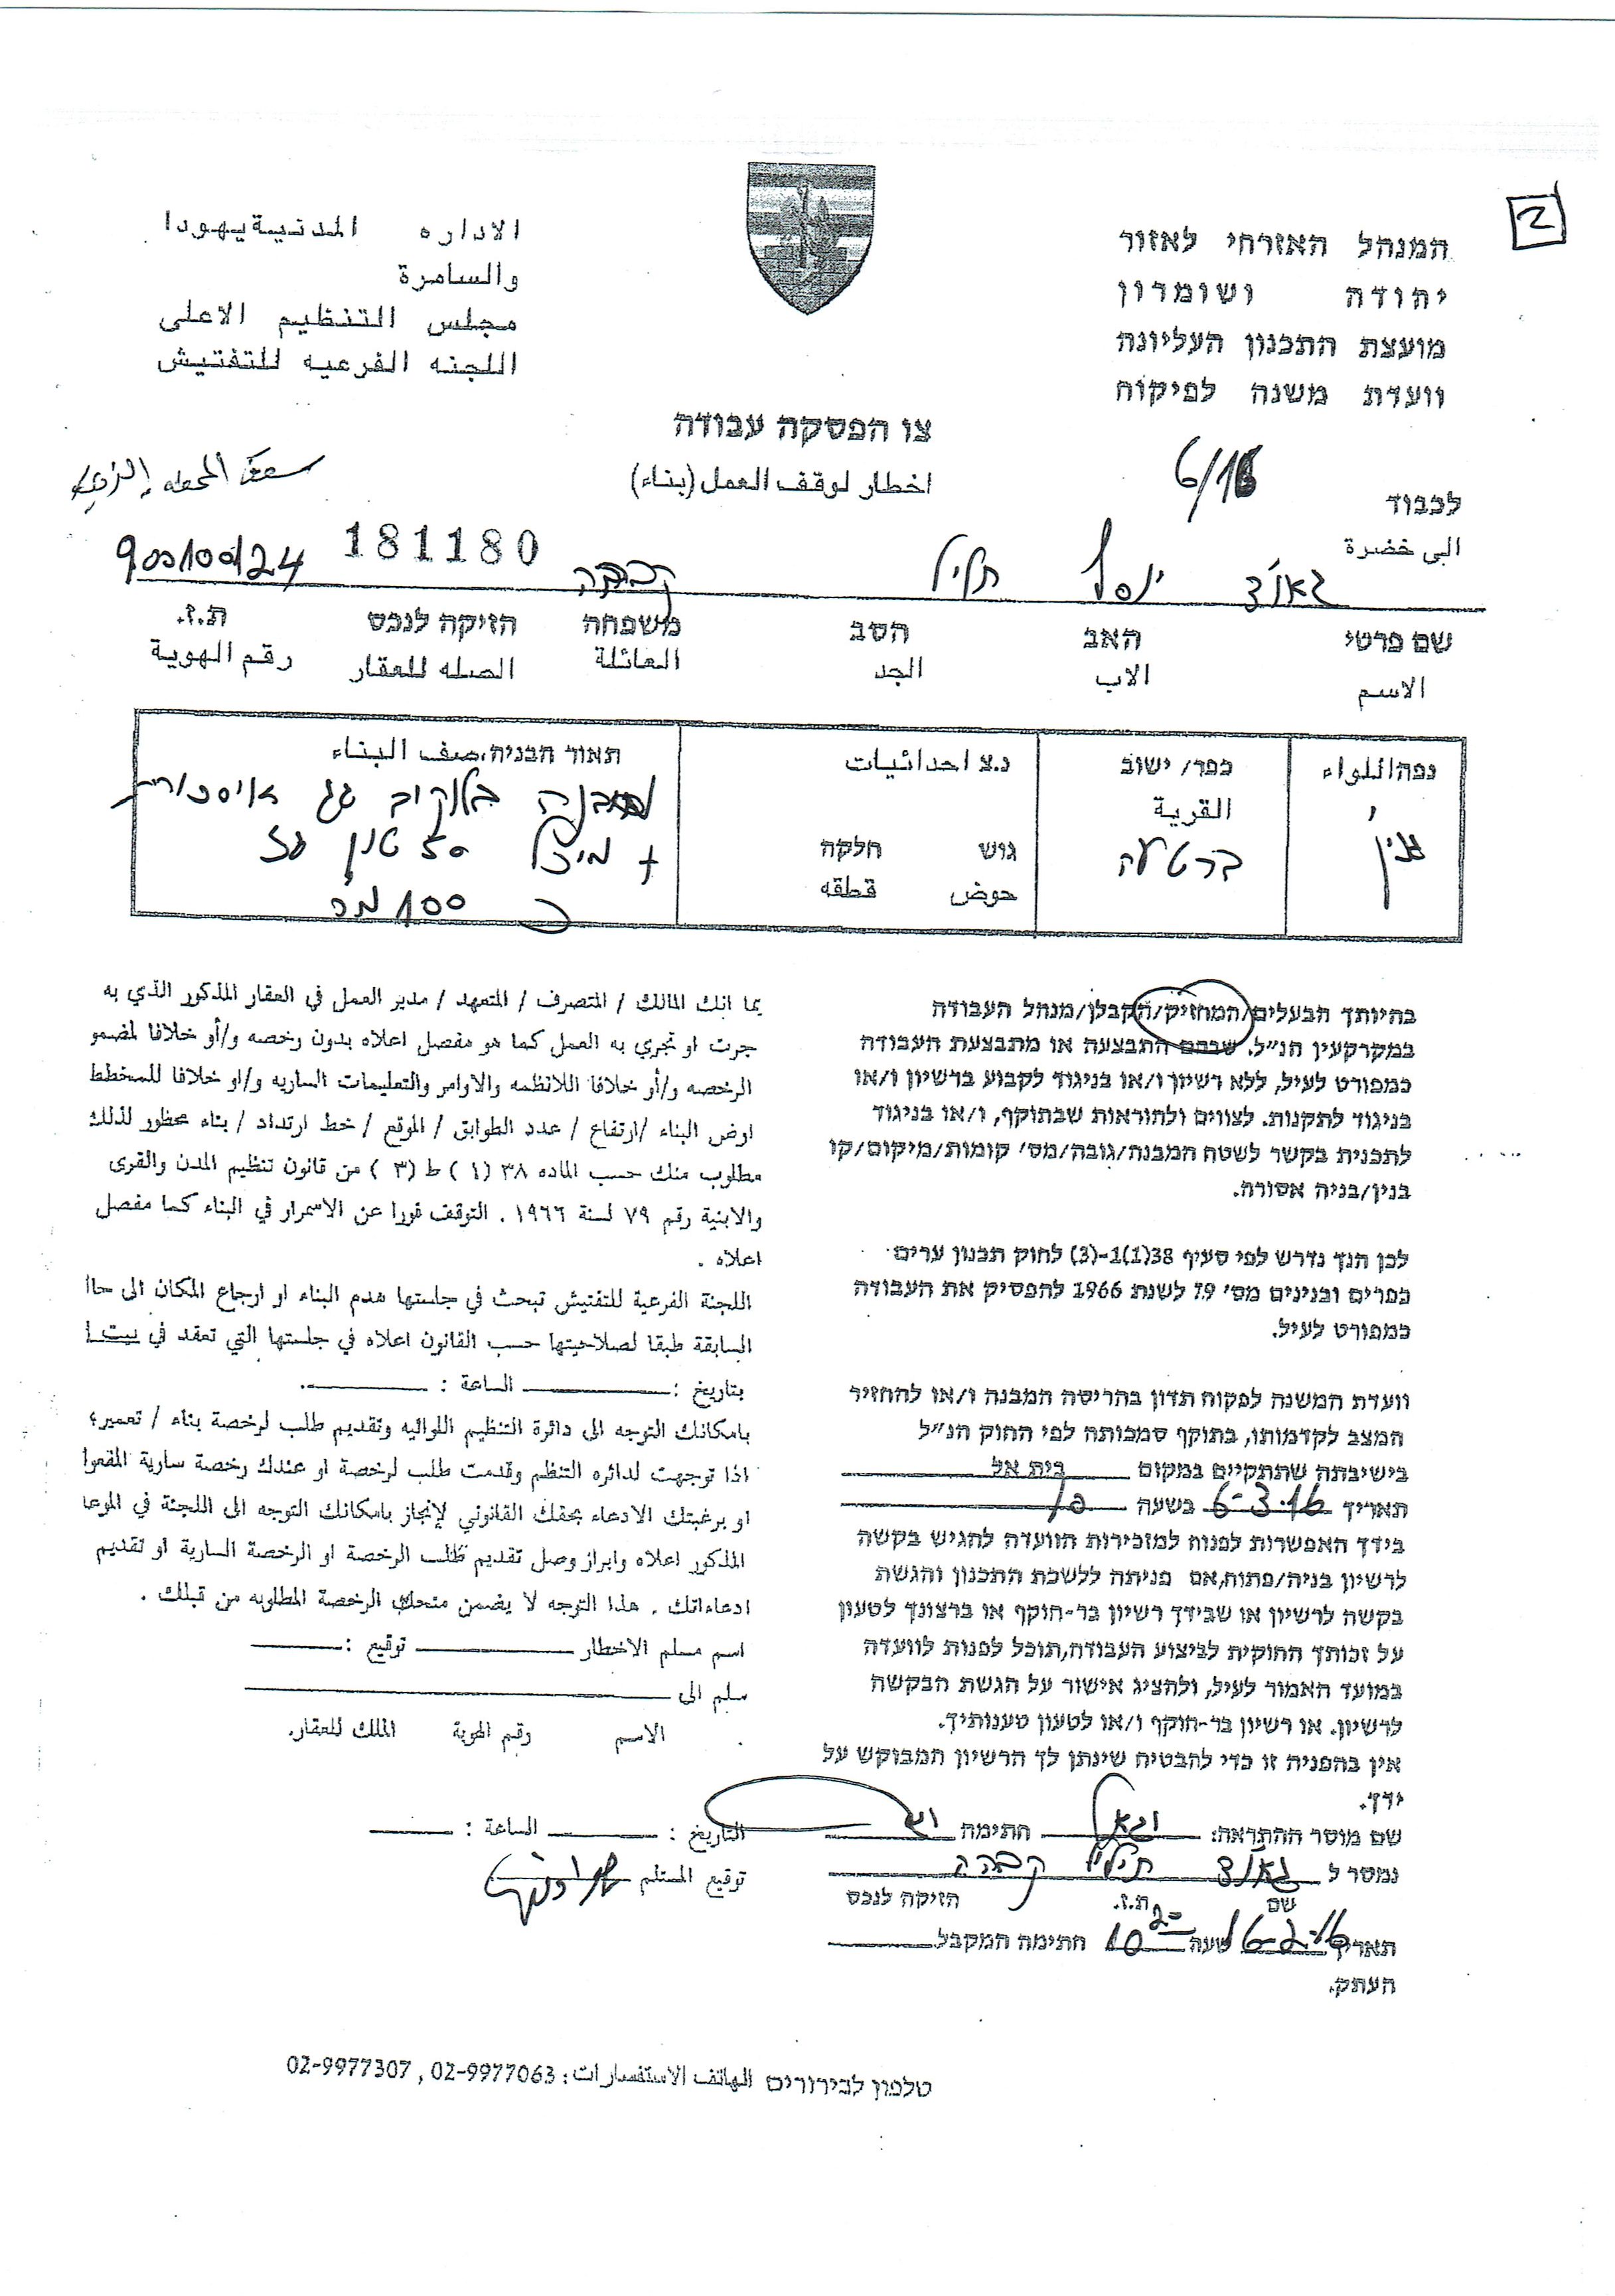 2
המנהל האזרחי לאזור
יהודה ושומרון
מועצת התכנון העליונה
וועדת משנה לפיקוח
الاداره المدنية يهودا
والسامرة
مجلس التنظيم الاعلى
اللجنه الفرعيه للتفتيش
צו הפסקה עבודה
اخطار لوقف العمل (بناء)
6/16
לכבוד
الى خضرة
181180
יוסף
שם פרטי האב הסב משפחה הזיקה לנכס ת.ז.
الاسم الاب الجد العائلة الصله للعقار رقم الهوية
נפה اللواء
ג'נין
כפר/ ישוב
القرية
ברטעה
נ.צ احداثيات
גוש חלקה
حوض قطقه
תאור הבניה، صف البناء
מבנה בלוקים גג איסכורית
+ מיכל 50 טון גז
כ 100 מר
בהיותך הבעלים/המחזיק/הקבלן/מנהל העבודה
במקרקעין הנ"ל. שבהם התבצעה או מתבצעת העבודה
כמפורט לעיל, ללא רשיון ו/או בניגוד לקבוע ברשיון ו/או
בניגוד לתקנות. לצווים ולהוראות שבתוקף, ו/או בניגוד
לתכנית בקשר לשטח המבנה/גובה/מס' קומות/מיקום/קו
בנין/בניה אסורה.
לכן הנך נדרש לפי סעיף 38(1)1-(3) לחוק תכנון ערים
כפרים ובנינים מס' 79 לשנת 1966 להפסיק את העבודה
כמפורט לעיל.
וועדת המשנה לפקוח תדון בהריסה המבנה ו/או להחזיר
המצב לקדמותו, בתוקף סמכותה לפי החוק הנ"ל
בישיבתה שתתקיים במקום בית אל
תאריך 6-3-16 בשעה 10
בידך האפשרות לפנות למזכירות הוועדה להגיש בקשה
לרשיון בניה/פתוח,אם פניתה ללשכת התכנון והגשת
בקשה לרשיון או שבידך רשיון בר-תוקף או ברצונך לטעון
על זכותך החוקית לביצוע העבודה,תוכל לפנות לוועדה
במועד האמור לעיל, ולהציג אישור על הגשת הבקשה
לרשיון. או רשיון בר-תוקף ו/או לטעון טענותיך.
אין בהפניה זו כדי להבטיח שינתן לך הרשיון המבוקש על
ידך.
שם מוסר ההתראה: חתימה
נמסר ל
שם ת.ז. הזיקה לנכס
תאריך 16-2-16 שעה 10 20 חתימה המקבל
העתק.
بما انك المالك / المتصرف / المتعهد / مدير العمل في العقار المذكور الذي به
جرت او تجري به العمل كما هو مفصل اعلاه بدون رخصه و/أو خلافا لمضمو
الرخصه و/أو خلافا اللانظمه والاوامر والتعليمات الساريه و/او خلافا للمخطط
ارض البناء /ارتفاع / عدد الطوابق / الموقع / خط ارتداد / بناء محظور لذلك
مطلوب منك حسب الماده ٣٨ (١) ط (٣) من قانون تنظيم المدن والقرى
والابنية رقم ٧٩ لسنة ١٩٦٦ . التوقف فورا عن الاسمرار في البناء كما مفصل
اعلاه .
اللجنة الفرعية للتفتيش تبحث في جلستها هدم البناء او ارجاع المكان الى حاا
السابقة طبقا لصلاحيتها حسب القانون اعلاه في جلستها التي تعقد في بيت ا
بتاريخ : الساعة : .
بامكانك التوجه الى دائرة التنظيم اللوائيه وتقديم طلب لرخصة بناء / تعمير؛
اذا توجهت لدائره التنظم وقدمت طلب لرخصة او عندك رخصة سارية المفعوا
او برغبتك الادعاء بحقك القانوني لإنجاز بامكانك التوجه الى اللجنة في الموعا
المذكور اعلاه وابراز وصل تقديم طلب الرخصة او الرخصة السارية او تقديم
ادعاءاتك . هذا التوجه لا يضمن منحك الرخصة المطلوبه من قبلك .
اسم مسلم الاخطار توقيع :
سلم الى
الاسم رقم الهوية الملك للعقار.
التاريخ : الساعة :
توقيع المستلم
טלפון לבירורים الهاتف الاستفسارات: 02-9977063 , 02-9977307